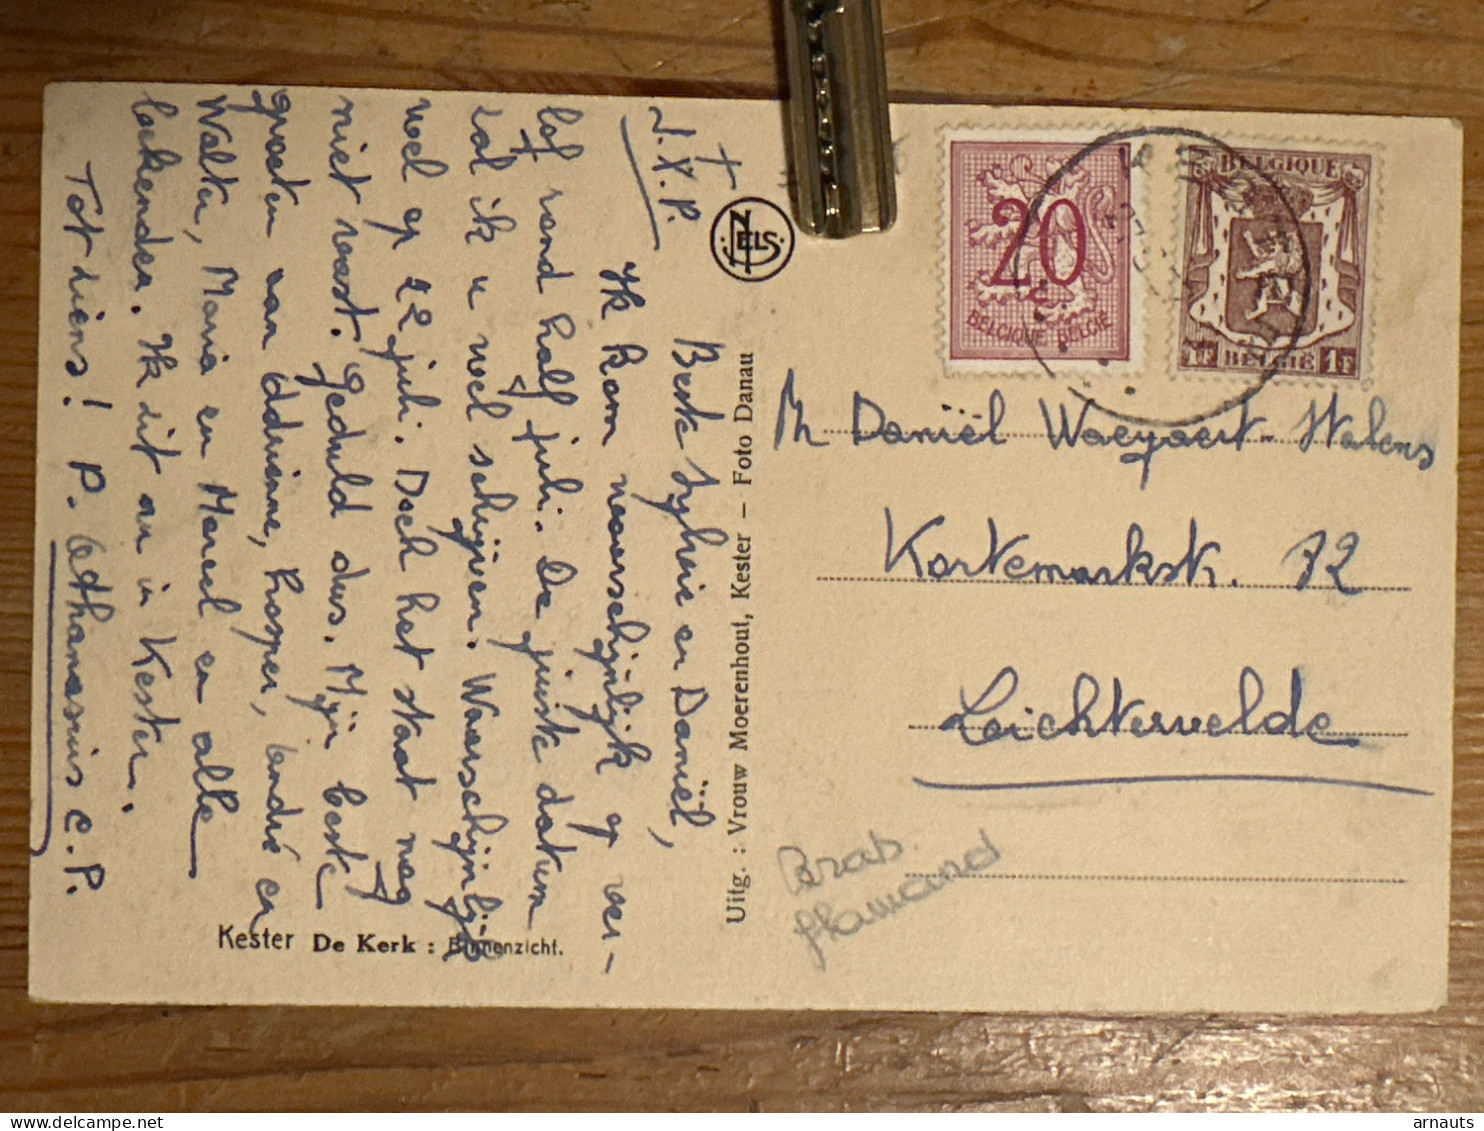 J.X.P.
Beste Sylvie en Daniël,
Ik kom waarschijnlijk op ver-
lof rond half juli. De juiste datum
zal ik u wel schrijven. Waarschijnlijk
wel op 22 juli. Doch het staat nog
niet vast. Geduld dus. Mijn beste
groeten aan Adrienne, Prosper, André en
Walter, Maria en Marcel en alle
bekenden. Ik zit nu in Kester.
Tot ziens! P. Athanasius C.P.
Kester De Kerk : Binnenzicht.
NELS
Uitg. : Vrouw Moerenhout, Kester – Foto Danau
20
BELGIQUE-BELGIË
BELGIQUE
1F BELGIË 1F
M Daniël Waeyaert-Halens
Kortemarkstr. 72
Lichtervelde
Brab.
flamand
arnauts